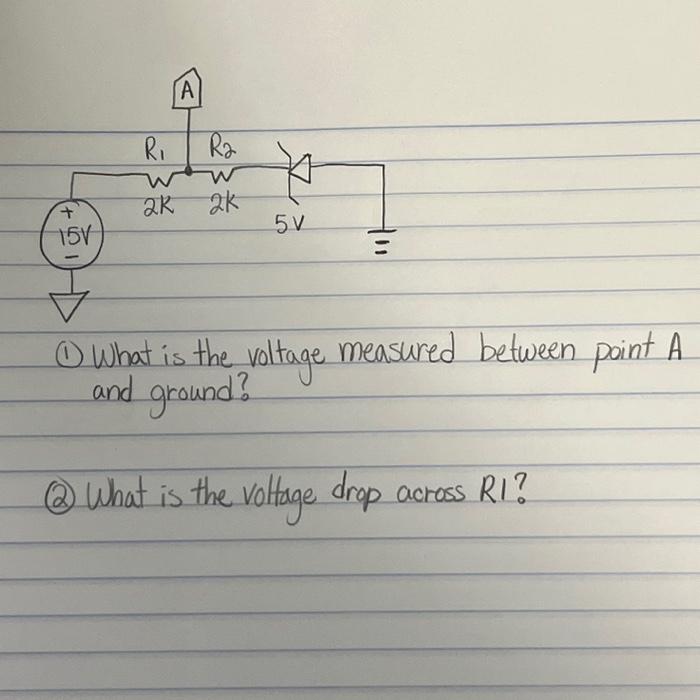 A
R1 R2
2K 2K
+
15V
−
5V
① What is the voltage measured between point A
and ground?
② What is the voltage drop across R1?